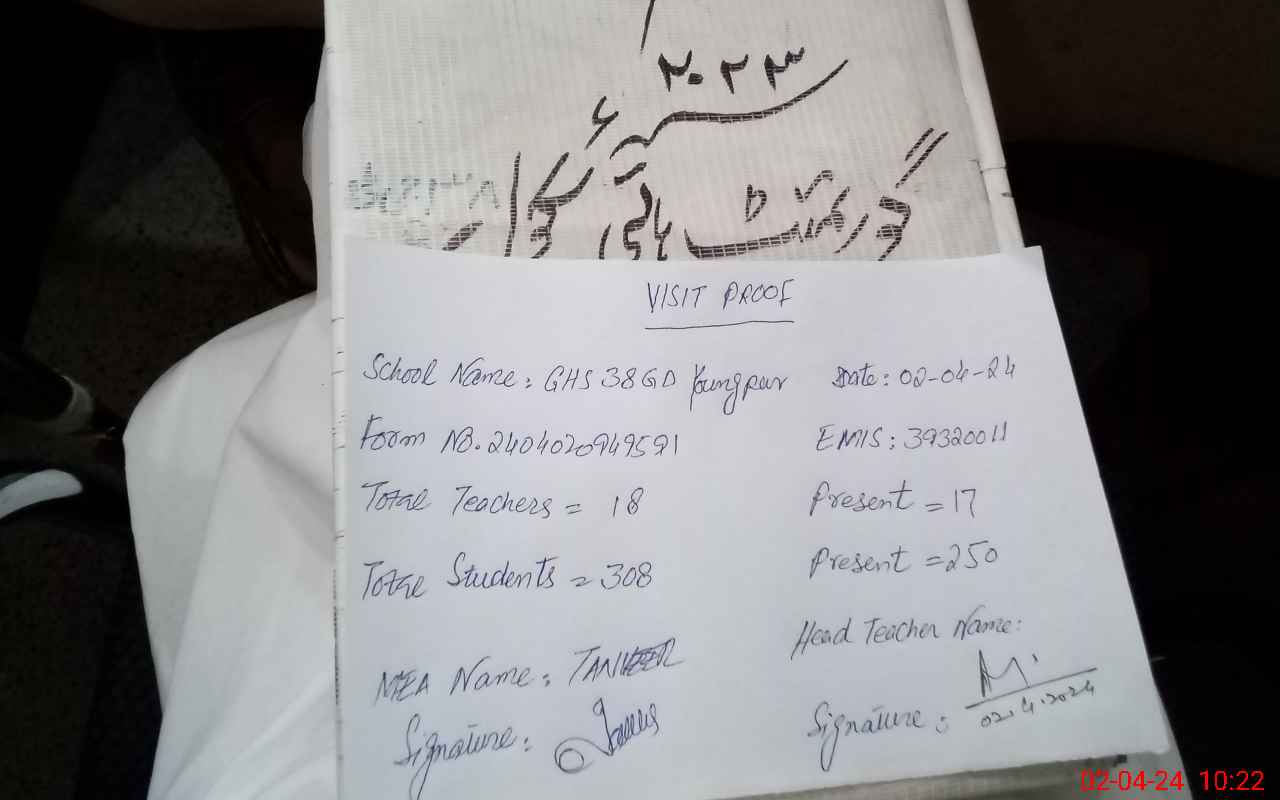 ۲۰۲۳
گورنمنٹ ہائی سکول
VISIT PROOF
School Name: GHS 38GD Youngpur Date: 02-04-24
Form NO. 2404020949591 EMIS: 39320011
Total Teachers = 18 Present = 17
Total Students = 308 Present = 250
Head Teacher Name:
MEA Name: TANVEER
Signature: Signature:
02.4.2024
02-04-24 10:22